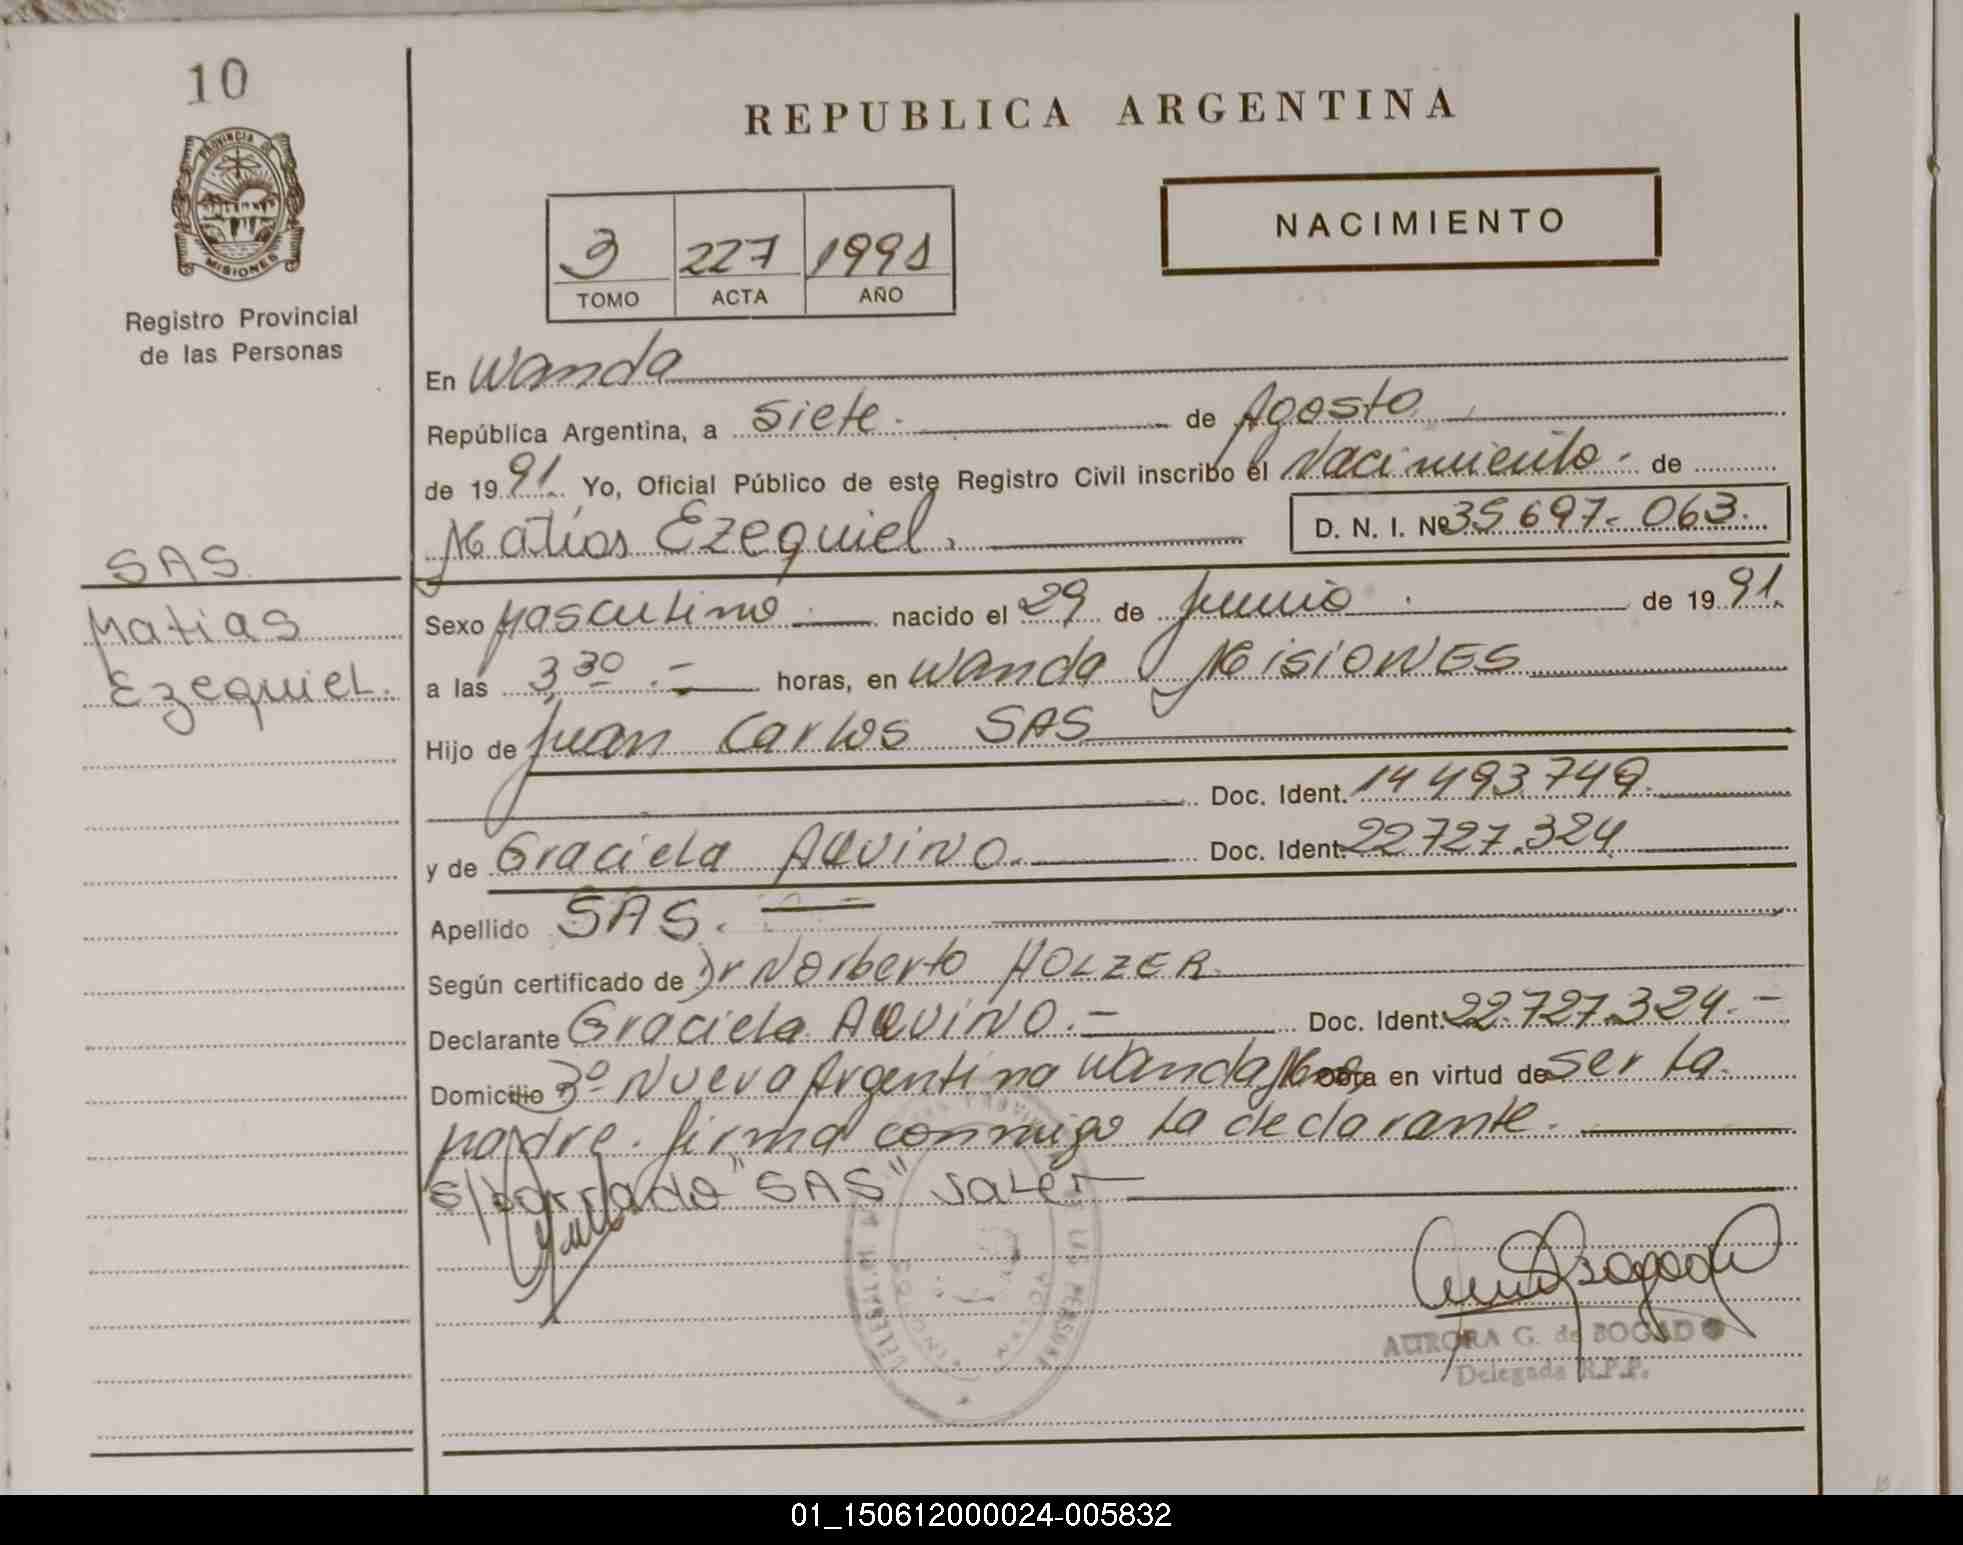 10
PROVINCIA DE
MISIONES
Registro Provincial
de las Personas
SAS
Matias
Ezequiel.
REPUBLICA ARGENTINA
NACIMIENTO
3 227 1991
TOMO ACTA AÑO
En Wanda
República Argentina, a siete. de Agosto
de 1991. Yo, Oficial Público de este Registro Civil inscribo el Nacimiento. de
Matías Ezequiel. D. N. I. Nº 35697.063.
Sexo Masculino nacido el 29 de Junio de 1991.
a las 3,30 horas, en Wanda Misiones
Hijo de Juan Carlos SAS
Doc. Ident. 14493749.
y de Graciela AQUINO. Doc. Ident. 22727.324
Apellido SAS.
Según certificado de Dr Norberto HOLZER.
Declarante Graciela AQUINO.- Doc. Ident. 22.727.324.-
Domicilio 3º Nueva Argentina Wanda Mnes obra en virtud de ser la
madre. firma conmigo la declarante.
s/borrado "SAS" vale
AURORA G. de BOGADO
Delegada R.P.P.
01_150612000024-005832